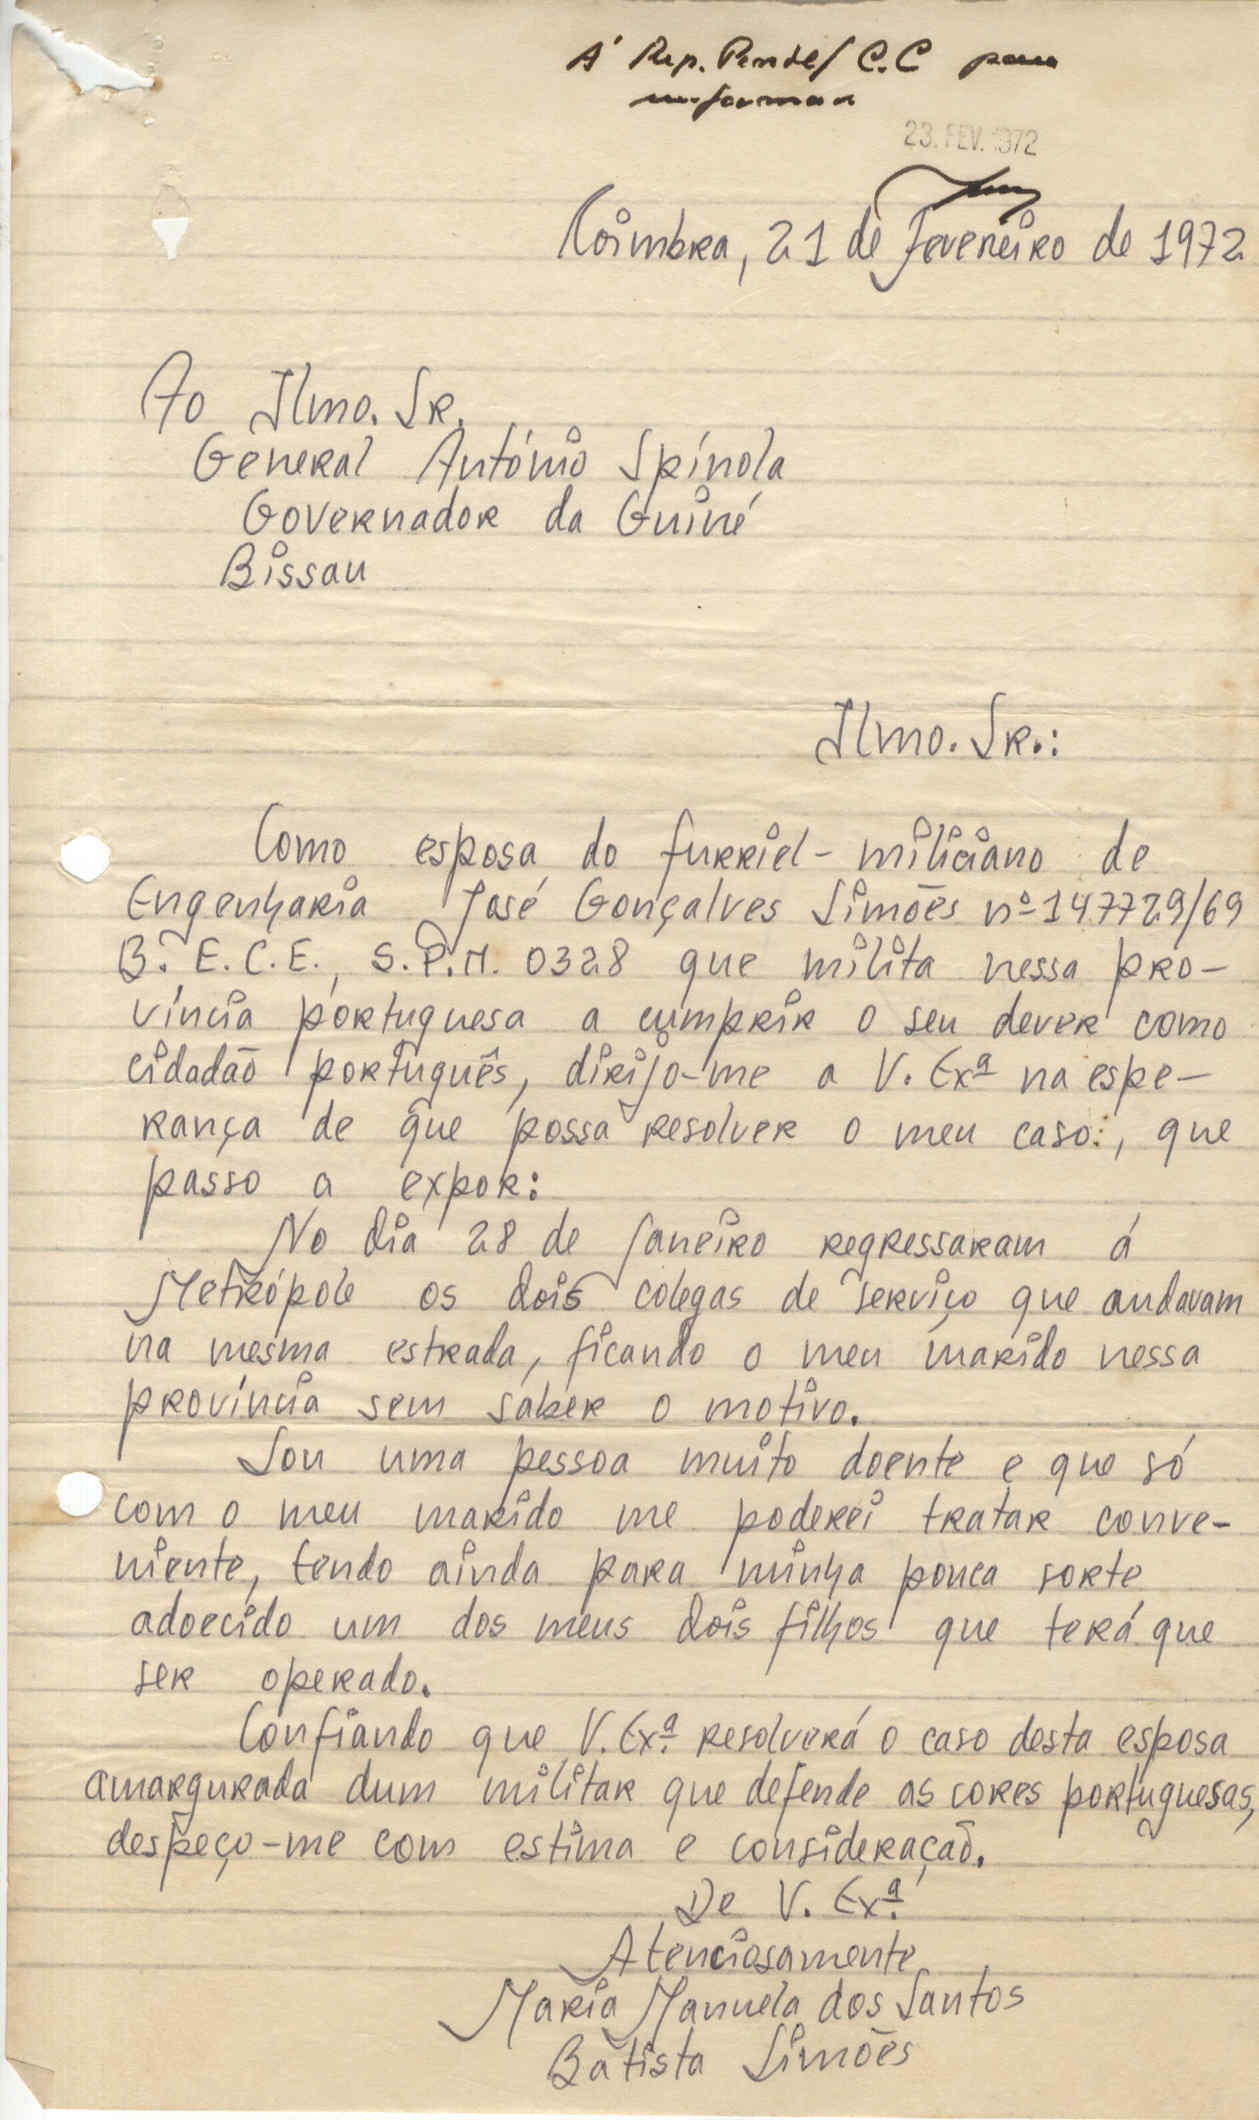 À Rep. C.C para
informar
23. FEV. 1972
Coimbra, 21 de Fevereiro de 1972
Ao Ilmo. Sr.
General António Spínola
Governador da Guiné
Bissau
Ilmo. Sr.:
Como esposa do furriel-miliciano de
Engenharia José Gonçalves Simões nº 147729/69
B. E. C. E., S.P.M. 0328 que milita nessa pro-
víncia portuguesa a cumprir o seu dever como
cidadão português, dirijo-me a V. Exª na espe-
rança de que possa resolver o meu caso:, que
passo a expor:
No dia 28 de Janeiro regressaram á
Metrópole os dois colegas de serviço que andavam
na mesma estrada, ficando o meu marido nessa
província sem saber o motivo.
Sou uma pessoa muito doente e que só
com o meu marido me poderei tratar conve-
niente, tendo ainda para minha pouca sorte
adoecido um dos meus dois filhos que terá que
ser operado.
Confiando que V. Exª resolverá o caso desta esposa
amargurada dum militar que defende as cores portuguesas,
despeço-me com estima e consideração.
De V. Exª
Atenciosamente
Maria Manuela dos Santos
Batista Simões